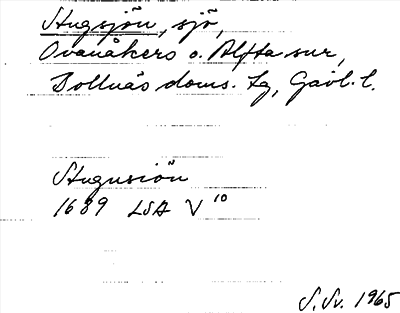 Stugsjön, sjö,
Ovanåkers o. Alfta snr,
Bollnäs doms. tg, Gävl. l.
Stugusiön
1689 LSA V¹⁰
S. Sv. 1965